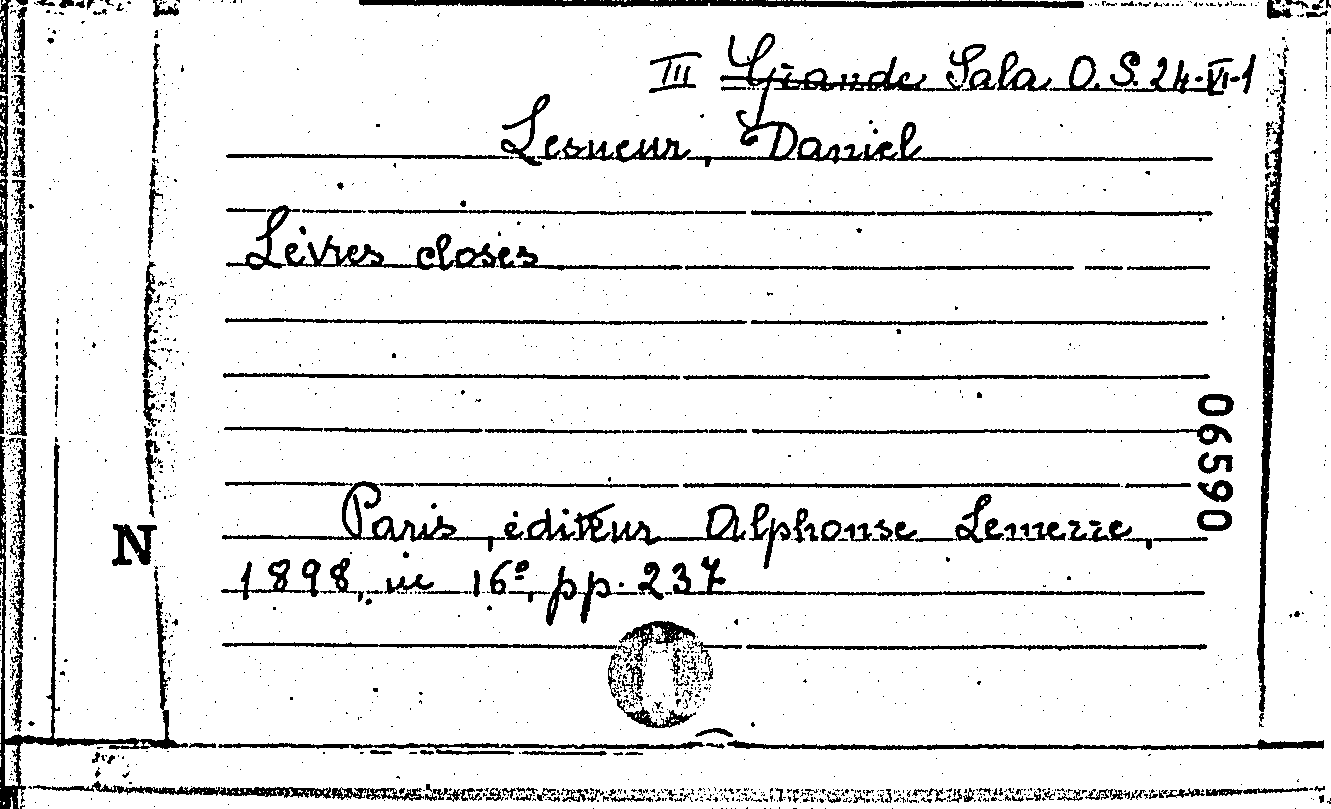 III Grande Sala O. S. 24-VI-1
Lesueur, Daniel
Lèvres closes
06590
Paris, éditeur Alphonse Lemerre,
N
1898, in 16º, pp. 237